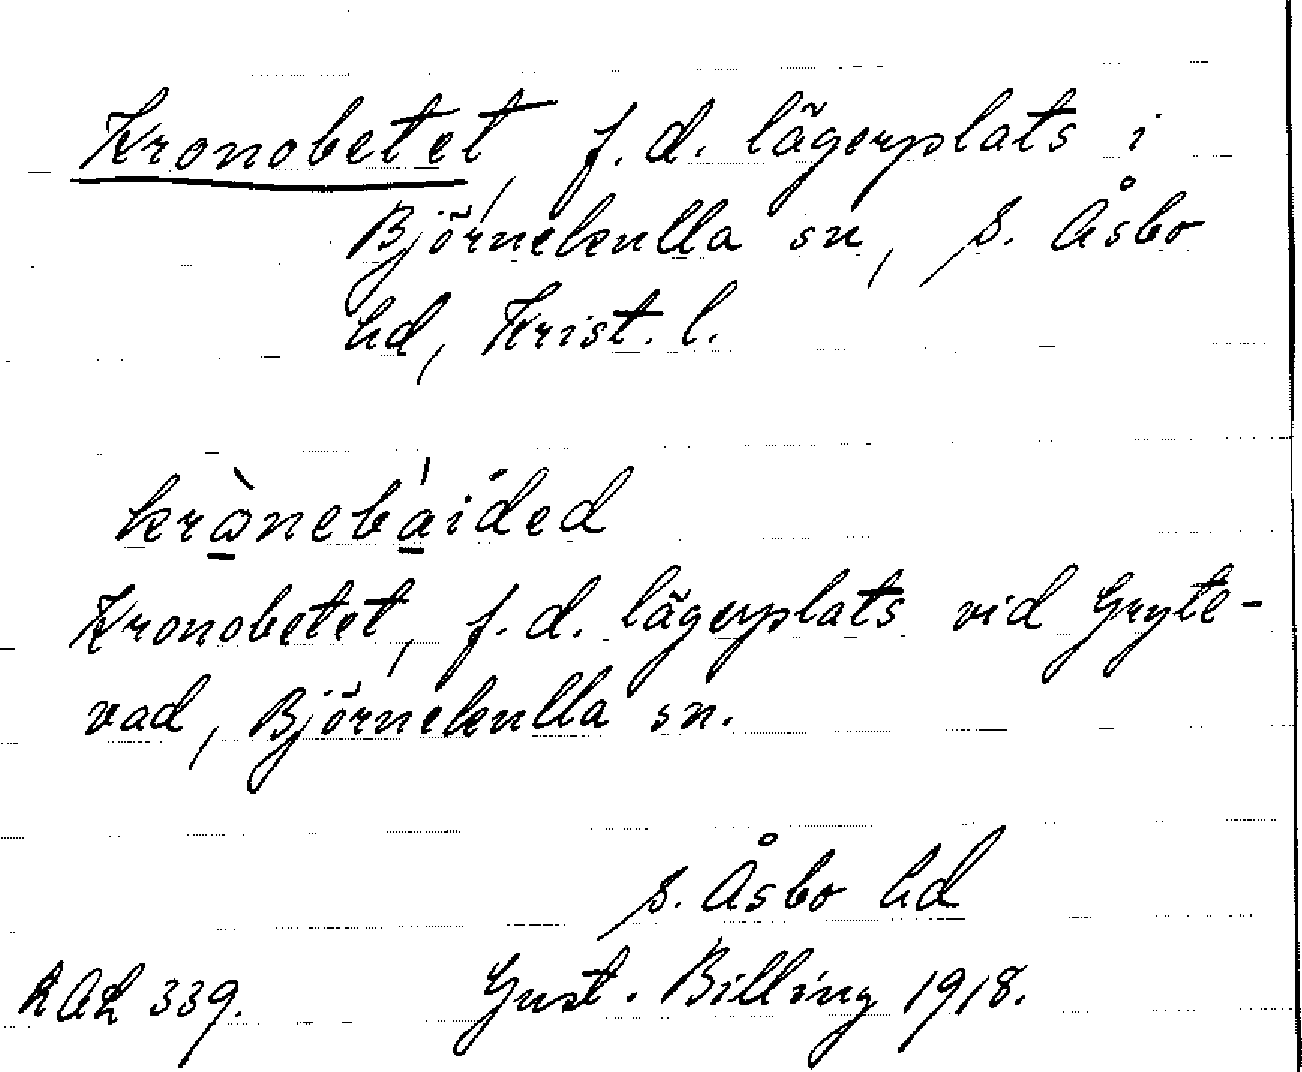 Kronobetet, f.d. lägerplats i
Björnekulla sn, S. Åsbo
hd, Krist. l.
krὰnebàided
Kronobetet, f.d. lägerplats vid Gryte-
vad, Björnekulla sn.
S. Åsbo hd
339. Gust. Billing 1918.